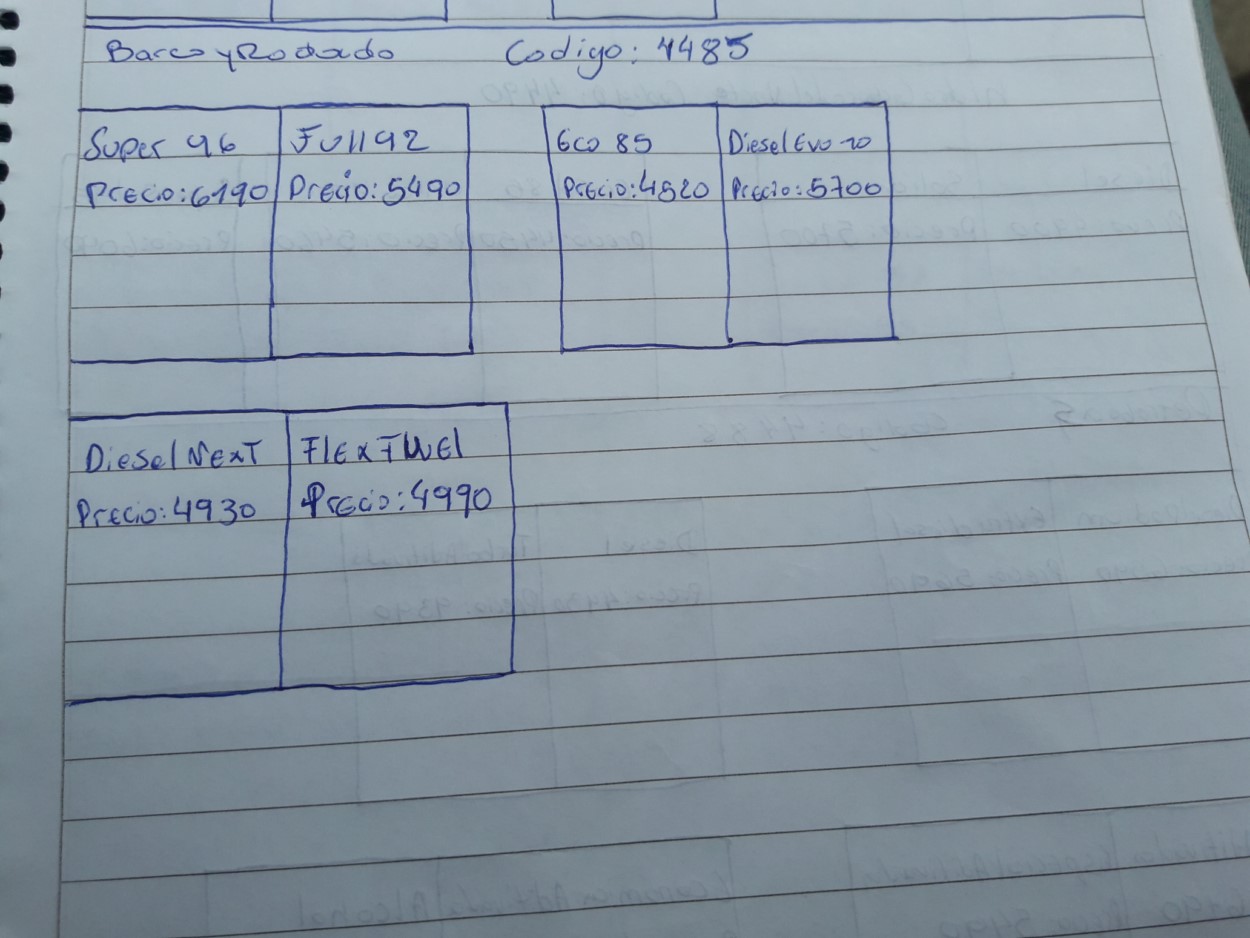 Barco y Rodado Codigo: 4485
Super 96 Full 92 Eco 85 Diesel Evo 10
Precio: 6190 Precio: 5490 Precio: 4520 Precio: 5700
Diesel NexT FlexFuel
Precio: 4930 Precio: 4990